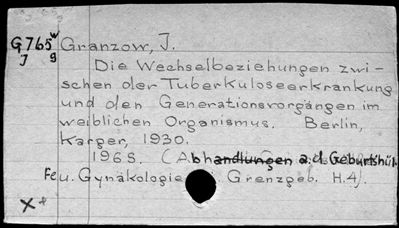 G765w Granzow, J.
J g
Die Wechselbeziehungen zwi-
schen der Tuberkuloseerkrankung
und den Generationsvorgängen im
weiblichen Organismus. Berlin,
Karger, 1930.
196S. (Abhandlungen a.d. Geburtshül-
Fe u. Gynäkologie Grenzgeb. H.4).
X